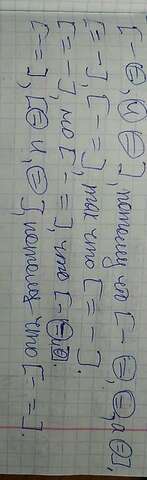 [– ⊖, и ⊖], потому что [– ⊖, ⊖, а ⊖],
[= –], [– =], так что [= – ].
[= –], но [– =], что [–
[– =], [⊖ и, ⊖], потому что [– =].